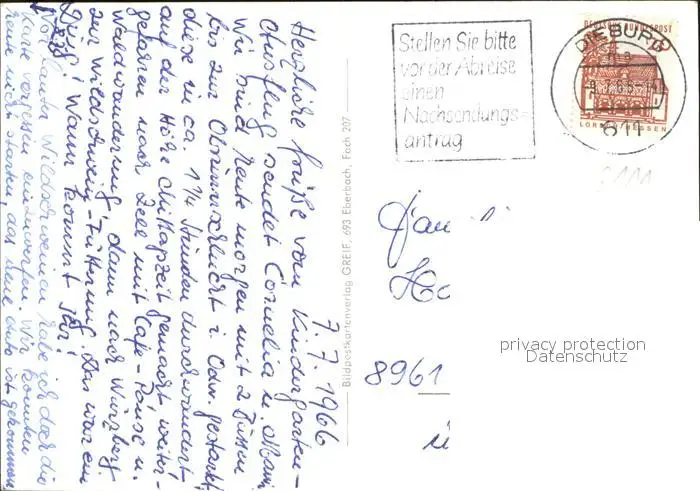 7.7.1966
Herzliche Grüße vom Kindergarten-
Ausflug sendet Cornelia u. Mami
Wir sind heute morgen mit 2 Bussen
bis zur Ohrenbachschlucht i. Odw. gestartet
diese in ca. 1 1/4 Stunden durchwandert
auf der Höhe Mittagszeit gemacht, weiter-
gefahren nach Zell mit Cafe-Pause u.
Waldwanderung, dann nach Würzberg
zur Wildschwein-Fütterung. Das war ein
Wann kommt Ihr?
Vor lauter Wildschweinen habe ich doch die
Karte vergessen einzuwerfen. Wir konnten
heute nicht starten, das neue Auto ist gekommen
Bildpostkartenverlag GREIF, 693 Eberbach, Fach 207
Stellen Sie bitte
vor der Abreise
einen
Nachsendungs-
antrag
DEUTSCHE BUNDESPOST
DIEBURG
611
LORSCH HESSEN
Fam
8961
privacy protection
Datenschutz